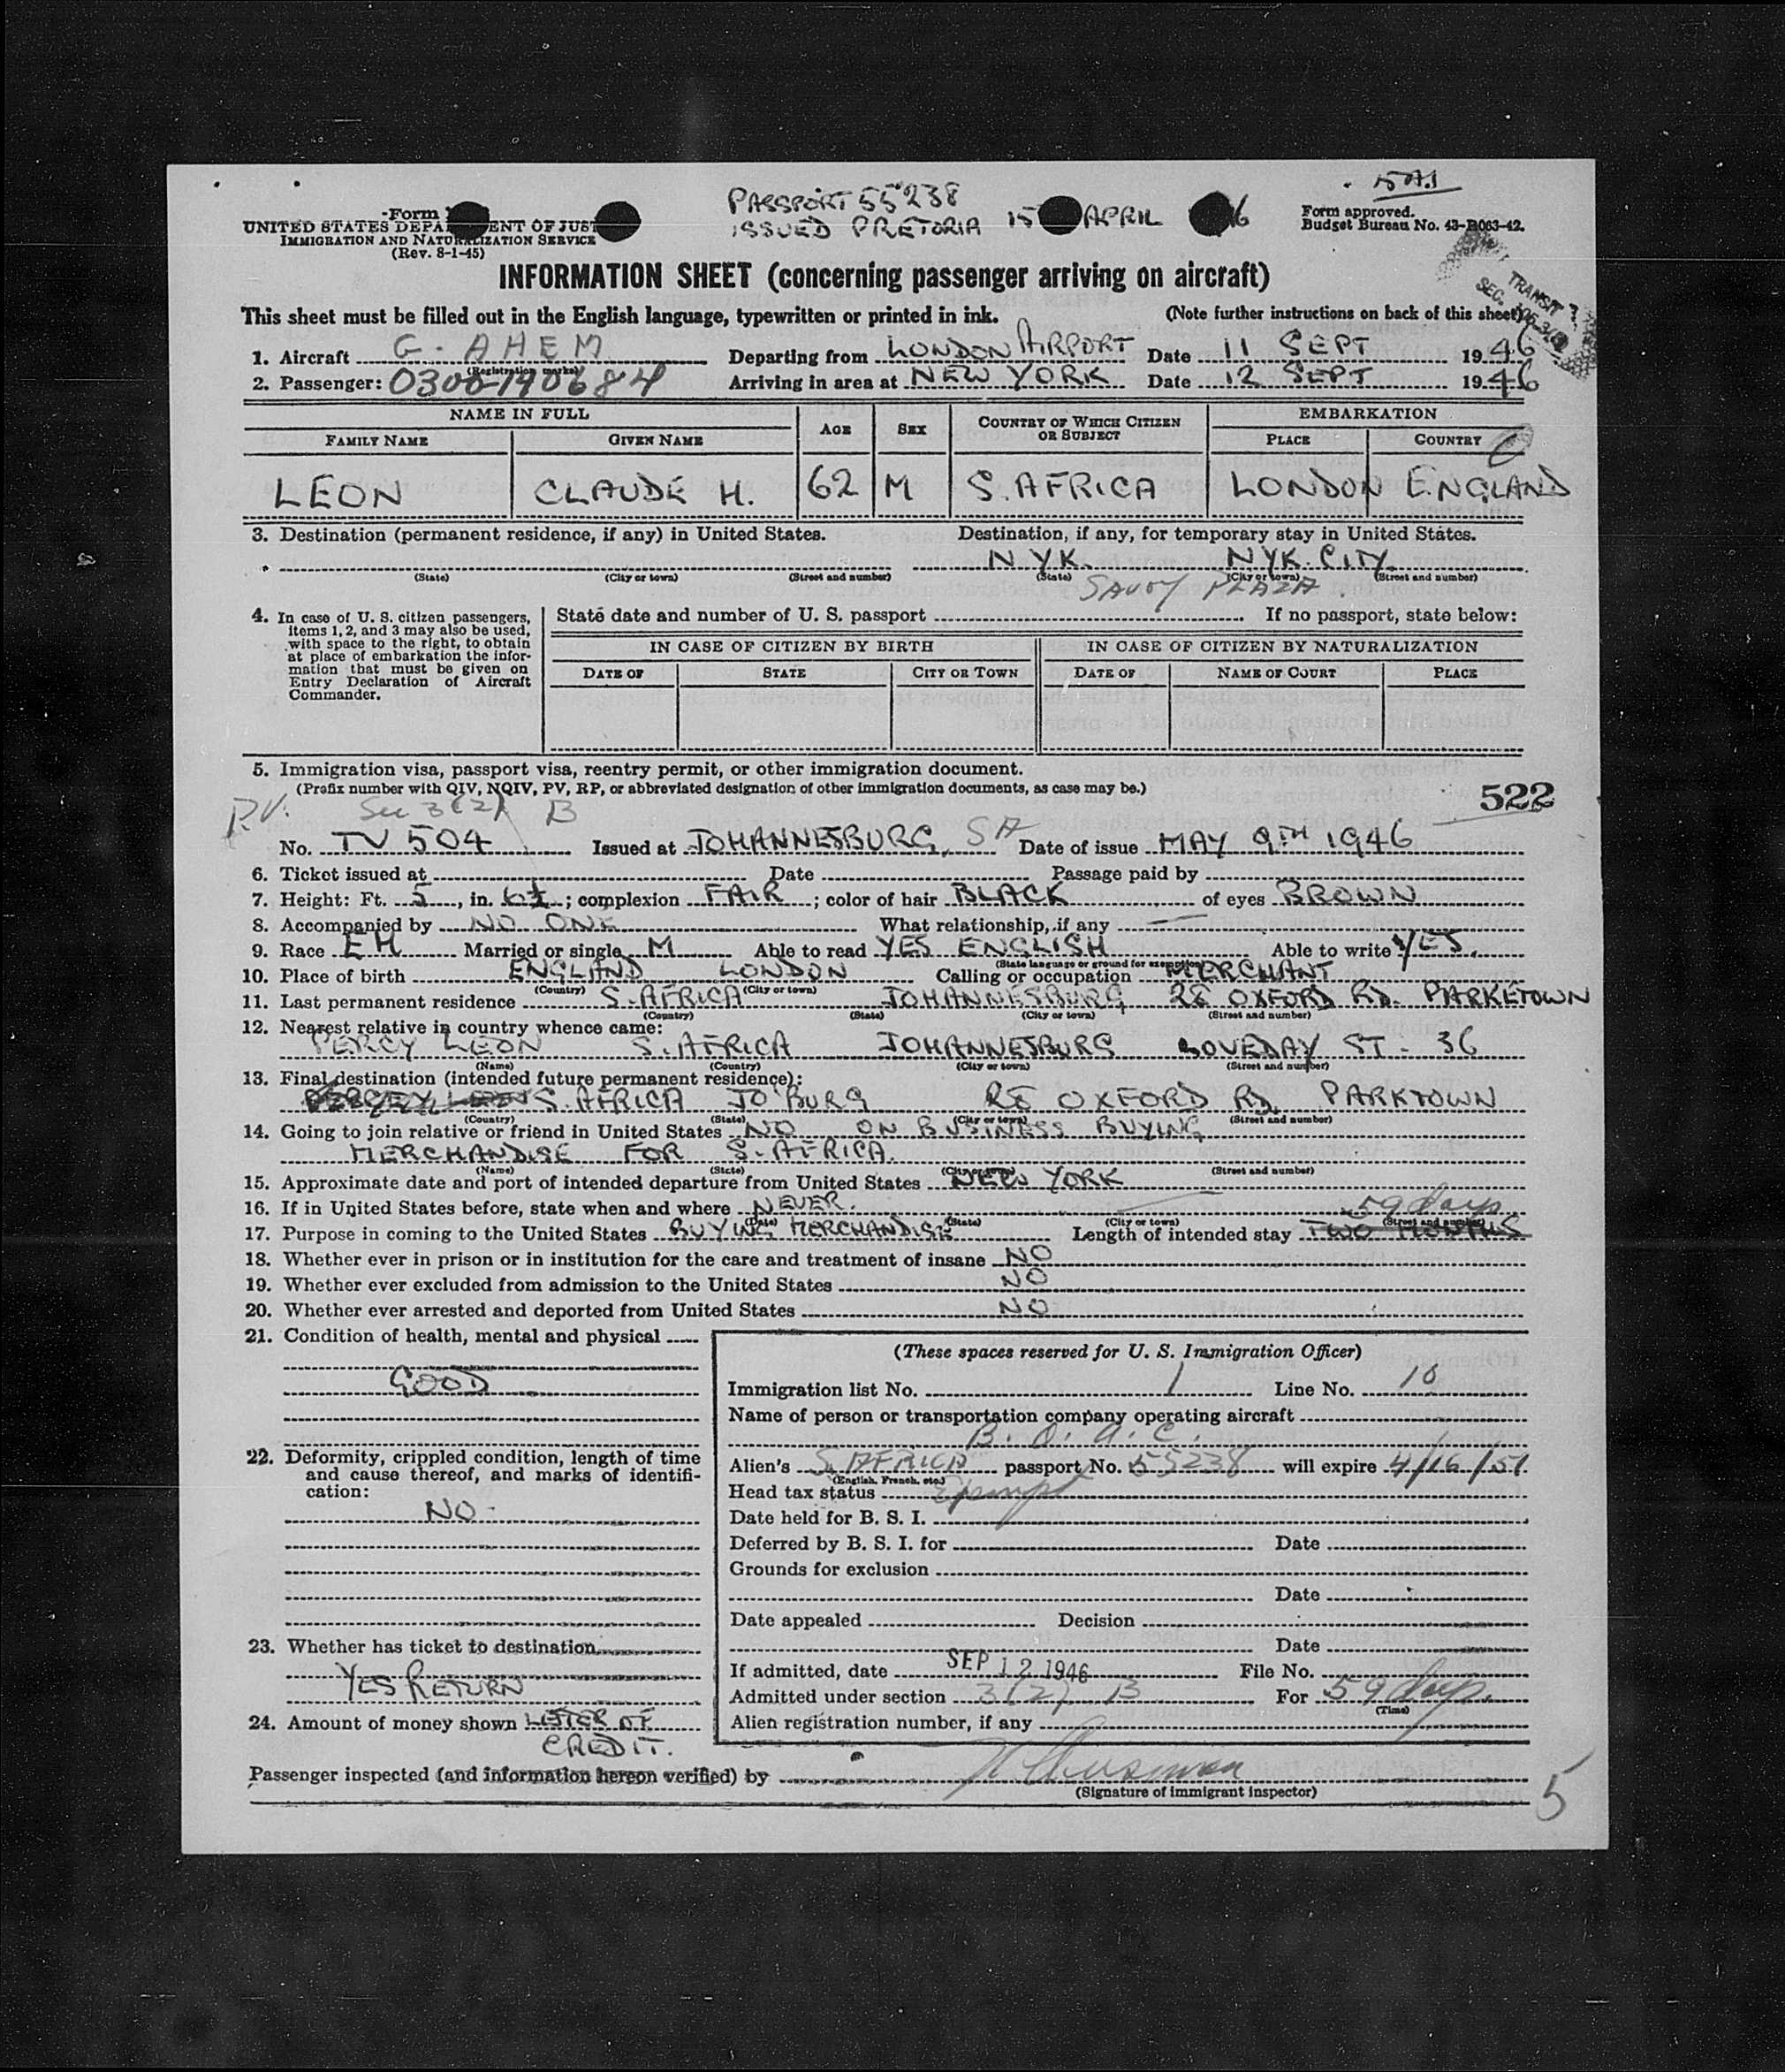 PASSPORT 55238
ISSUED PRETORIA 15 APRIL 6
Form
UNITED STATES DEPA ENT OF JUST
IMMIGRATION AND NATURALIZATION SERVICE
(Rev. 8-1-45)
Form approved.
Budget Bureau No. 43-R063-42.
INFORMATION SHEET (concerning passenger arriving on aircraft)
TRANSIT
SEC.
This sheet must be filled out in the English language, typewritten or printed in ink. (Note further instructions on back of this sheet)
1. Aircraft G-AHEM Departing from LONDON AIRPORT Date 11 SEPT 1946
(Registration marks)
2. Passenger: 0300-190684 Arriving in area at NEW YORK Date 12 SEPT 1946
NAME IN FULL AGE SEX COUNTRY OF WHICH CITIZEN OR SUBJECT EMBARKATION
FAMILY NAME GIVEN NAME PLACE COUNTRY
LEON CLAUDE H. 62 M S. AFRICA LONDON ENGLAND
3. Destination (permanent residence, if any) in United States. Destination, if any, for temporary stay in United States.
NYK. NYK. CITY.
(State) (City or town) (Street and number) (State) (City or town) (Street and number)
SAVOY PLAZA.
4. In case of U. S. citizen passengers, items 1, 2, and 3 may also be used, with space to the right, to obtain at place of embarkation the information that must be given on Entry Declaration of Aircraft Commander.
State date and number of U. S. passport If no passport, state below:
IN CASE OF CITIZEN BY BIRTH IN CASE OF CITIZEN BY NATURALIZATION
DATE OF STATE CITY OR TOWN DATE OF NAME OF COURT PLACE
5. Immigration visa, passport visa, reentry permit, or other immigration document.
(Prefix number with QIV, NQIV, PV, RP, or abbreviated designation of other immigration documents, as case may be.) 522
P.V. Sec 3(2) B
No. TV 504 Issued at JOHANNESBURG, SA Date of issue MAY 9TH 1946
6. Ticket issued at Date Passage paid by
7. Height: Ft. 5, in. 6½; complexion FAIR; color of hair BLACK of eyes BROWN
8. Accompanied by NO ONE What relationship, if any —
9. Race EH Married or single M Able to read YES ENGLISH Able to write YES.
(State language or ground for exemption)
10. Place of birth ENGLAND LONDON Calling or occupation MERCHANT
(Country) (City or town)
11. Last permanent residence S. AFRICA JOHANNESBURG 28 OXFORD RD. PARKETOWN
(Country) (State) (City or town) (Street and number)
12. Nearest relative in country whence came:
PERCY LEON S. AFRICA JOHANNESBURG LOVEDAY ST. 36
(Name) (Country) (City or town) (Street and number)
13. Final destination (intended future permanent residence):
S. AFRICA JO'BURG 28 OXFORD RD. PARKTOWN
(Country) (State) (City or town) (Street and number)
14. Going to join relative or friend in United States NO ON BUSINESS BUYING
MERCHANDISE FOR S. AFRICA.
(Name) (State) (City or town) (Street and number)
15. Approximate date and port of intended departure from United States NEW YORK
16. If in United States before, state when and where NEVER. —
(Date) (State) (City or town) (Street and number)
59 days
17. Purpose in coming to the United States BUYING MERCHANDISE Length of intended stay TWO MONTHS
18. Whether ever in prison or in institution for the care and treatment of insane NO
19. Whether ever excluded from admission to the United States NO
20. Whether ever arrested and deported from United States NO
21. Condition of health, mental and physical
GOOD
22. Deformity, crippled condition, length of time and cause thereof, and marks of identification:
NO
23. Whether has ticket to destination
YES RETURN
24. Amount of money shown LETTER OF
CREDIT.
(These spaces reserved for U. S. Immigration Officer)
Immigration list No. 1 Line No. 10
Name of person or transportation company operating aircraft
B. O. A. C.
Alien's S. AFRICA passport No. 55238 will expire 4/16/51
(English, French, etc.)
Head tax status Exempt
Date held for B. S. I.
Deferred by B. S. I. for Date
Grounds for exclusion
Date
Date appealed Decision
Date
If admitted, date SEP 12 1946 File No.
Admitted under section 3(2) B For 59 days.
(Time)
Alien registration number, if any
Passenger inspected (and information hereon verified) by
(Signature of immigrant inspector)
5